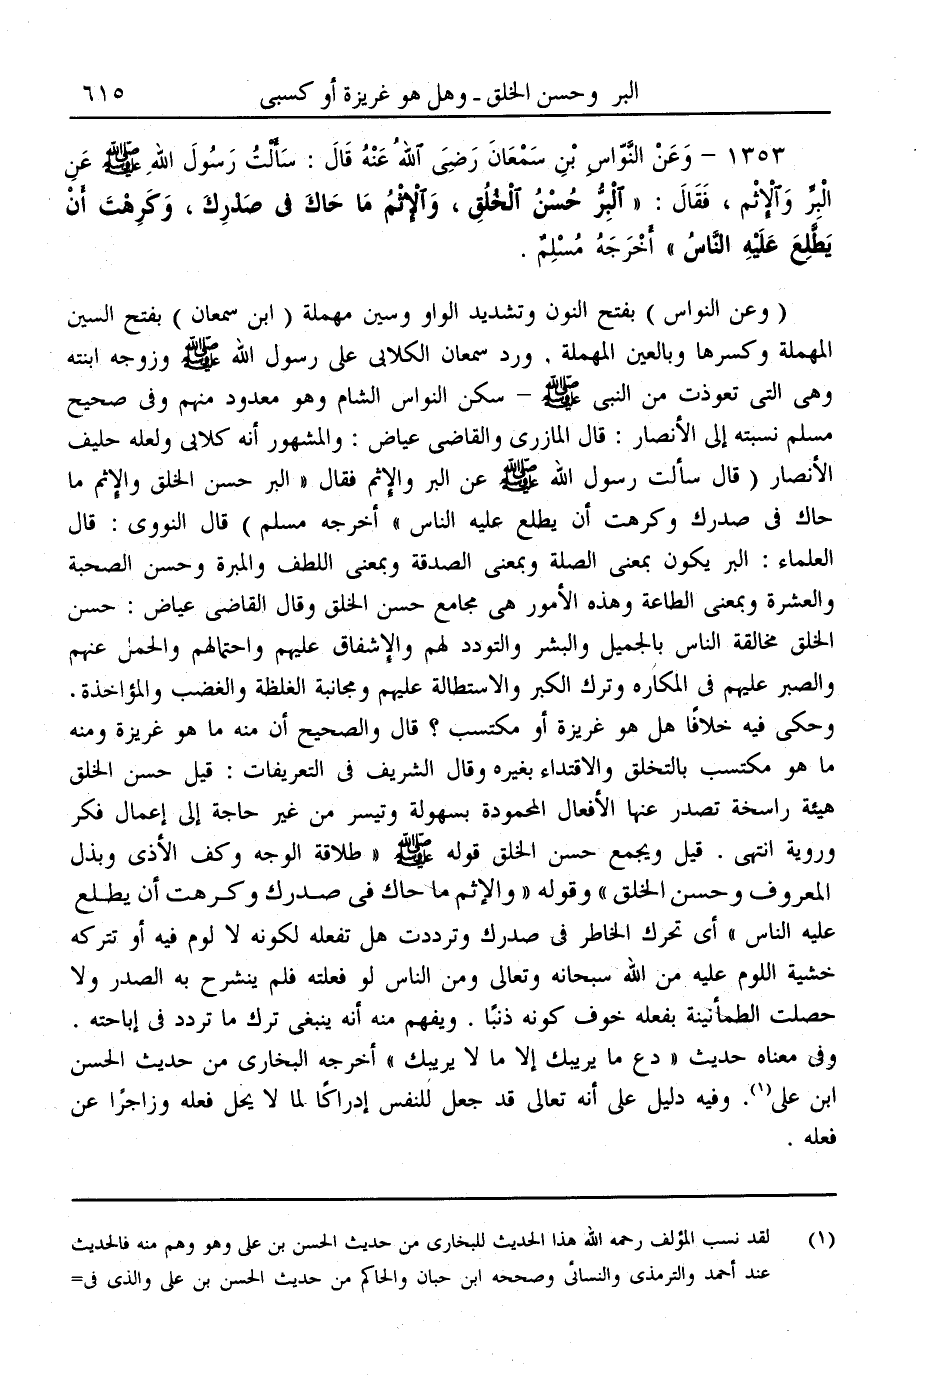 البر وحسن الخلق ـ وهل هو غريزة أو كسبى ٦١٥
١٣٥٣ – وَعَنْ النَّوّاسِ بْنِ سَمْعَانَ رَضِيَ ٱللهُ عَنْهُ قَالَ : سَأَلْتُ رَسُولَ اللهِ ﷺ عَنِ
الْبِرِّ وَٱلْإِثْمِ ، فَقَالَ : « ٱلْبِرُّ حُسْنُ ٱلْخُلُقِ ، وَٱلْإِثْمُ مَا حَاكَ فى صَدْرِكَ ، وَكَرِهْتَ أَنْ
يَطَّلِعَ عَلَيْهِ النَّاسُ » أَخْرَجَهُ مُسْلِمٌ .
( وعن النواس ) بفتح النون وتشديد الواو وسين مهملة ( ابن سمعان ) بفتح السين
المهملة وكسرها وبالعين المهملة . ورد سمعان الكلابى على رسول الله ﷺ وزوجه ابنته
وهى التى تعوذت من النبى ﷺ – سكن النواس الشام وهو معدود منهم وفى صحيح
مسلم نسبته إلى الأنصار : قال المازرى والقاضى عياض : والمشهور أنه كلابى ولعله حليف
الأنصار ( قال سألت رسول الله ﷺ عن البر والإثم فقال « البر حسن الخلق والإثم ما
حاك فى صدرك وكرهت أن يطلع عليه الناس » أخرجه مسلم ) قال النووى : قال
العلماء : البر يكون بمعنى الصلة وبمعنى الصدقة وبمعنى اللطف والمبرة وحسن الصحبة
والعشرة وبمعنى الطاعة وهذه الأمور هى مجامع حسن الخلق وقال القاضى عياض : حسن
الخلق مخالقة الناس بالجميل والبشر والتودد لهم والإشفاق عليهم واحتمالهم والحمل عنهم
والصبر عليهم فى المكاره وترك الكبر والاستطالة عليهم ومجانبة الغلظة والغضب والمؤاخذة .
وحكى فيه خلافًا هل هو غريزة أو مكتسب ؟ قال والصحيح أن منه ما هو غريزة ومنه
ما هو مكتسب بالتخلق والاقتداء بغيره وقال الشريف فى التعريفات : قيل حسن الخلق
هيئة راسخة تصدر عنها الأفعال المحمودة بسهولة وتيسر من غير حاجة إلى إعمال فكر
وروية انتهى . قيل ويجمع حسن الخلق قوله ﷺ « طلاقة الوجه وكف الأذى وبذل
المعروف وحسن الخلق » وقوله « والإثم ما حاك فى صدرك وكرهت أن يطلع
عليه الناس » أى تحرك الخاطر فى صدرك وترددت هل تفعله لكونه لا لوم فيه أو تتركه
خشية اللوم عليه من الله سبحانه وتعالى ومن الناس لو فعلته فلم ينشرح به الصدر ولا
حصلت الطمأنينة بفعله خوف كونه ذنبًا . ويفهم منه أنه ينبغى ترك ما تردد فى إباحته .
وفى معناه حديث « دع ما يريبك إلا ما لا يريبك » أخرجه البخارى من حديث الحسن
ابن على(١). وفيه دليل على أنه تعالى قد جعل للنفس إدراكًا لما لا يحل فعله وزاجرًا عن
فعله .
(١) لقد نسب المؤلف رحمه الله هذا الحديث للبخارى من حديث الحسن بن على وهو وهم منه فالحديث
عند أحمد والترمذى والنسائى وصححه ابن حبان والحاكم من حديث الحسن بن على والذى فى=